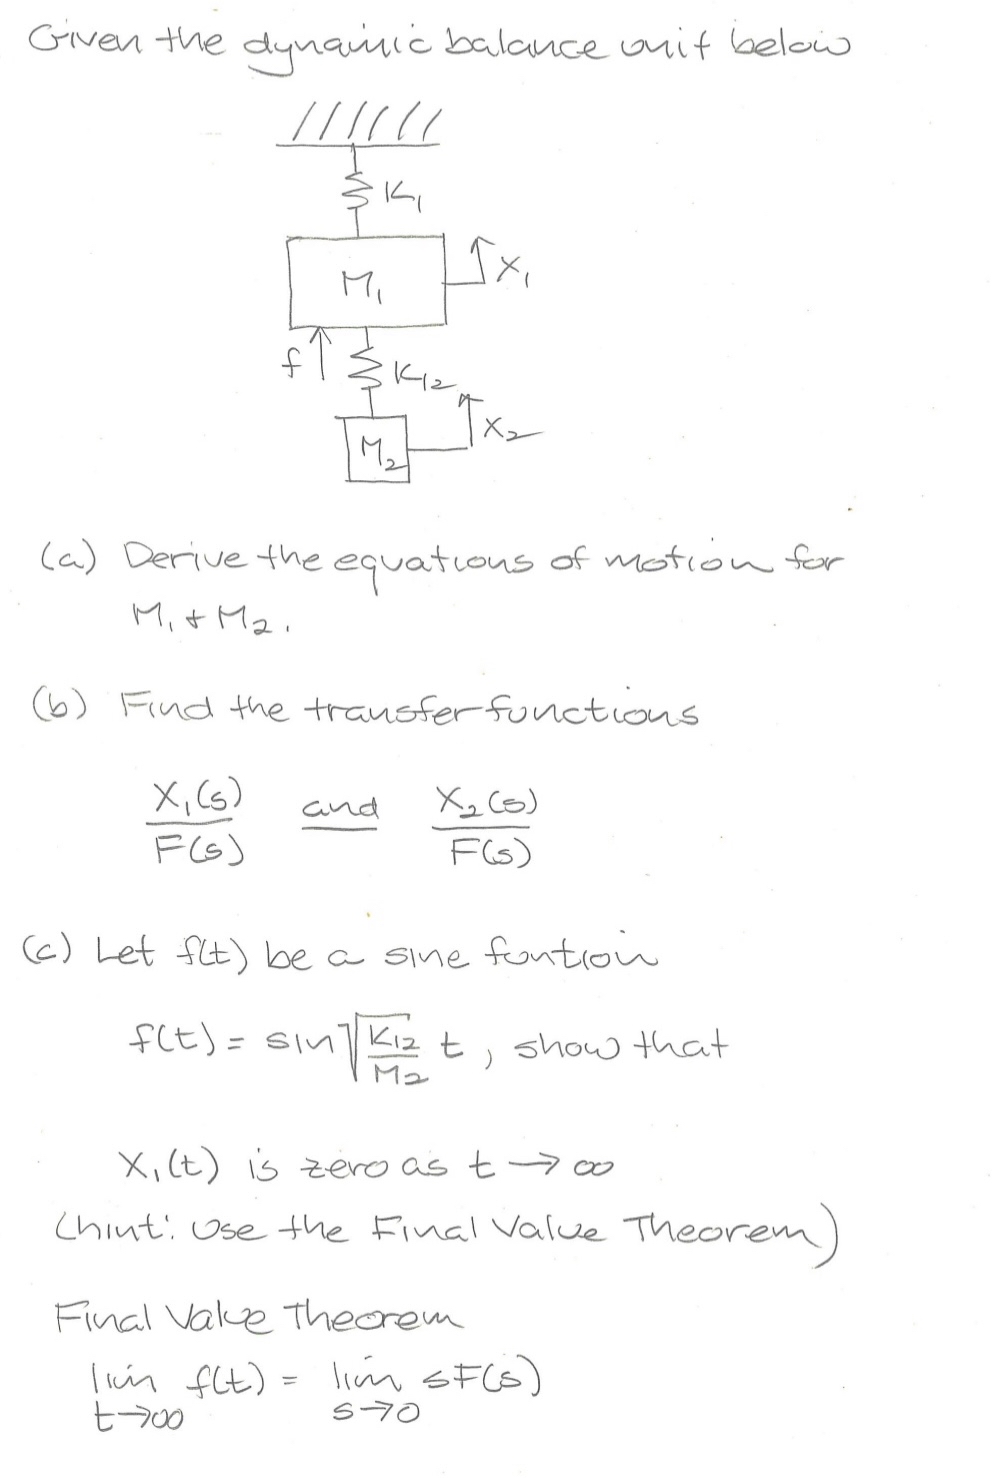 Given the dynamic balance unit below
K1
M1
X1
f
K12
X2
M2
(a) Derive the equations of motion for
M1 + M2.
(b) Find the transfer functions
X1(s) and X2(s)
F(s) F(s)
(c) Let f(t) be a sine funtion
f(t) = sin √K12/M2 t, show that
X1(t) is zero as t → ∞
(hint: Use the Final Value Theorem)
Final Value Theorem
lim f(t) = lim sF(s)
t→∞ s→0